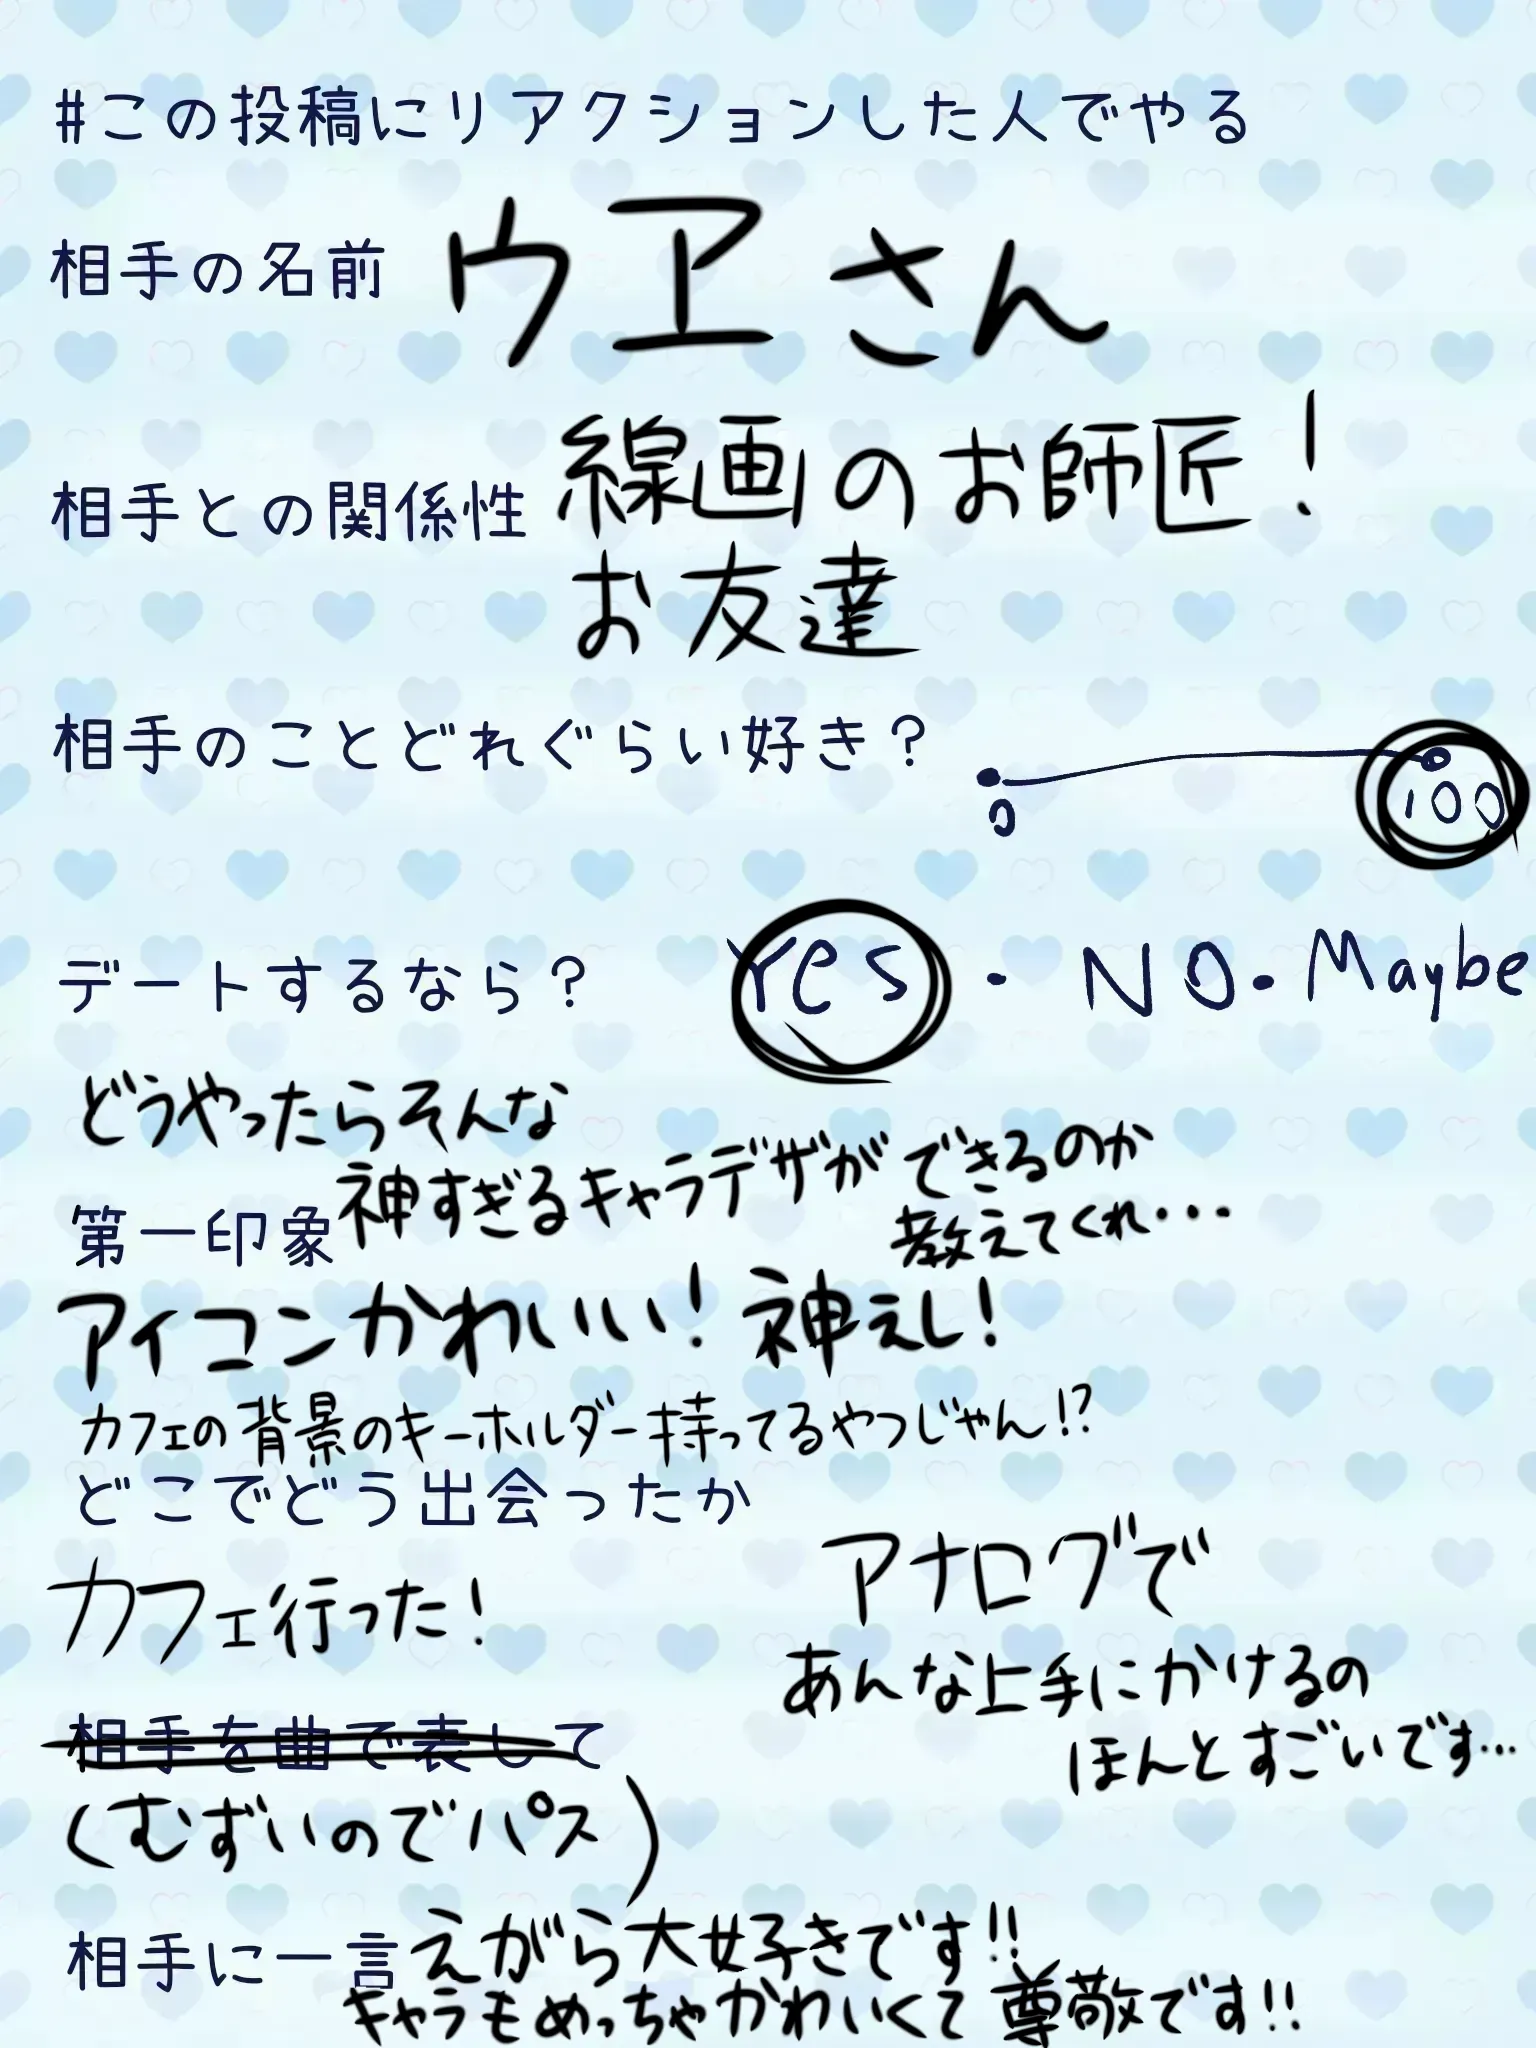 #この投稿にリアクションした人でやる
相手の名前 ウヱさん
相手との関係性 線画のお師匠!
お友達
相手のことどれぐらい好き?
0 100
デートするなら? Yes・NO・Maybe
どうやったらそんな
神すぎるキャラデザができるのか
教えてくれ・・・
第一印象
アイコンかわいい!神えし!
カフェの背景のキーホルダー持ってるやつじゃん!?
どこでどう出会ったか
カフェ行った!
アナログで
あんな上手にかけるの
ほんとすごいです…
相手を曲で表して
(むずいのでパス)
相手に一言 えがら大好きです!!
キャラもめっちゃかわいくて尊敬です!!